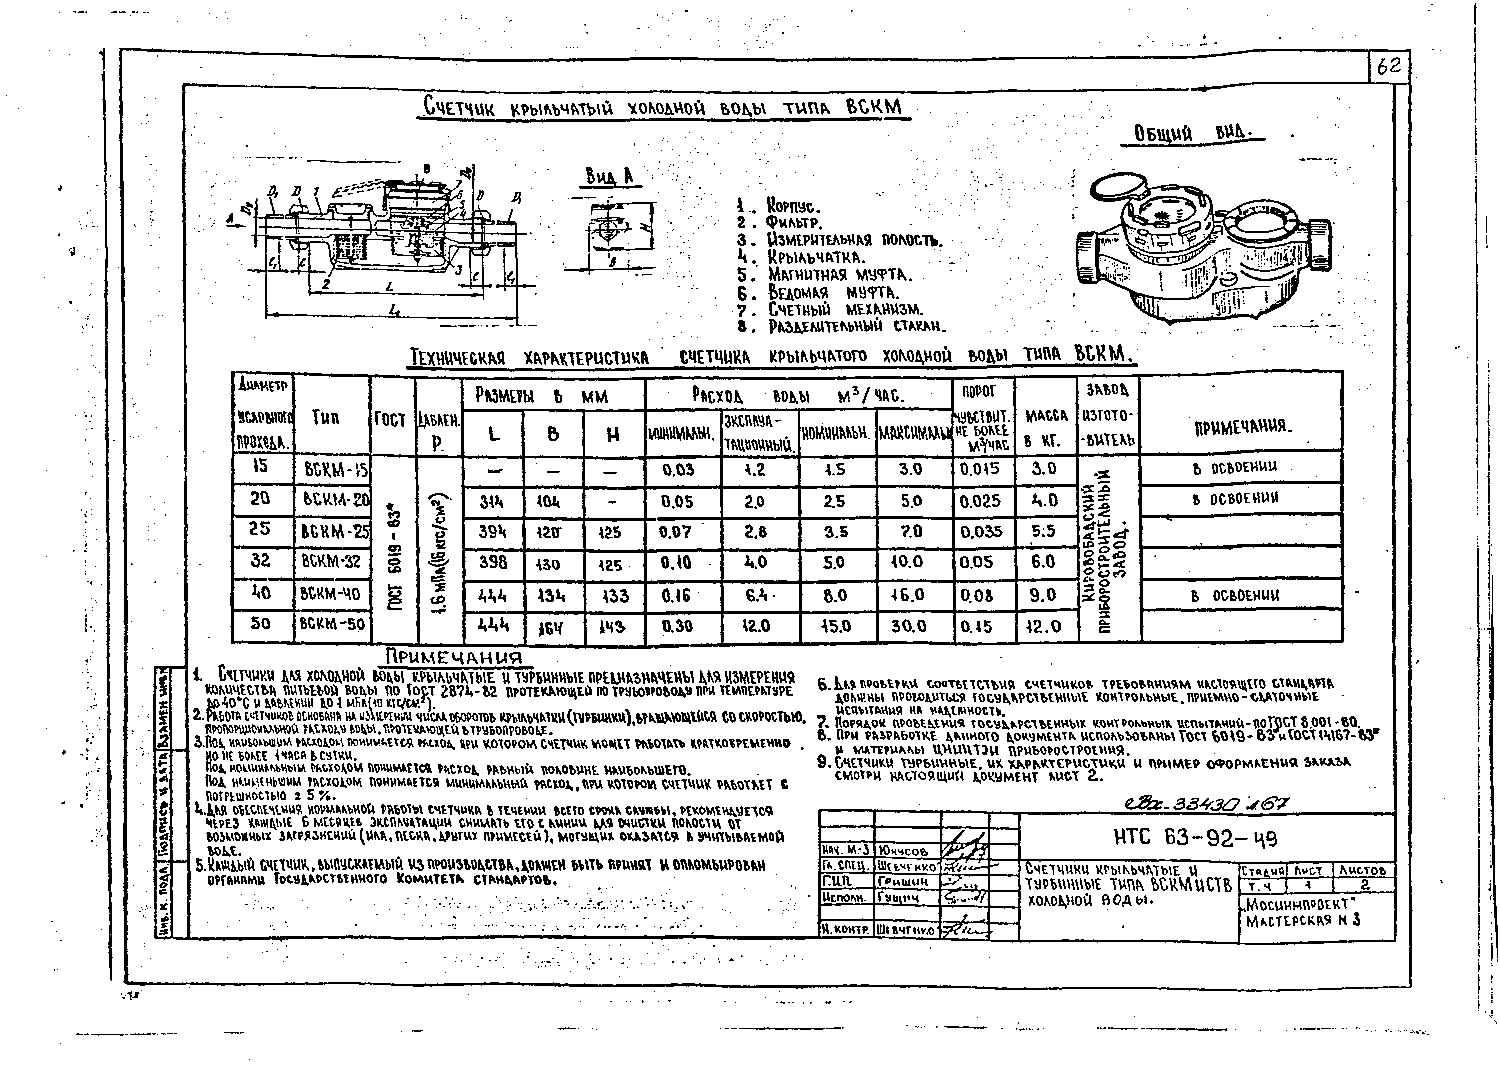 62
Счетчик крыльчатый холодной воды типа ВСКМ
Общий вид.
Вид А
1. Корпус.
2. Фильтр.
3. Измерительная полость.
4. Крыльчатка.
5. Магнитная муфта.
6. Ведомая муфта.
7. Счетный механизм.
8. Разделительный стакан.
Техническая характеристика счетчика крыльчатого холодной воды типа ВСКМ.
Диаметр условного прохода. Тип ГОСТ Давлен. Р. Размеры в мм Расход воды м³/час. Порог чувствит. не более м³/час Масса в кг. Завод изготовитель Примечания.
L B H Минимальн. Эксплуатационный. Номинальн. Максимальн
15 ВСКМ-15 — — — 0.03 1.2 1.5 3.0 0.015 3.0 В освоении
20 ВСКМ-20 314 104 — 0.05 2.0 2.5 5.0 0.025 4.0 В освоении
25 ВСКМ-25 394 120 125 0.07 2.8 3.5 7.0 0.035 5.5
32 ВСКМ-32 398 130 125 0.10 4.0 5.0 10.0 0.05 6.0
40 ВСКМ-40 444 134 133 0.16 6.4 8.0 16.0 0.08 9.0 В освоении
50 ВСКМ-50 444 164 143 0.30 12.0 15.0 30.0 0.15 12.0
ГОСТ 6019-83*
1.6 МПа (16 кгс/см²)
Кировобадский приборостроительный завод.
Примечания
1. Счетчики для холодной воды крыльчатые и турбинные предназначены для измерения
количества питьевой воды по ГОСТ 2874-82 протекающей по трубопроводу при температуре
до 40°С и давлении до 1 МПа (10 кгс/см²).
2. Работа счетчиков основана на измерении числа оборотов крыльчатки (турбинки), вращающейся со скоростью,
пропорциональной расходу воды, протекающей в трубопроводе.
3. Под наибольшим расходом понимается расход при котором счетчик может работать кратковременно
но не более 1 часа в сутки.
Под номинальным расходом понимается расход равный половине наибольшего.
Под наименьшим расходом понимается минимальный расход, при котором счетчик работает с
погрешностью ± 5%.
4. Для обеспечения нормальной работы счетчика в течении всего срока службы, рекомендуется
через каждые 6 месяцев эксплуатации снимать его с линии для очистки полости от
возможных загрязнений (ила, песка, других примесей), могущих оказатся в учитываемой
воде.
5. Каждый счетчик, выпускаемый из производства, должен быть принят и опломбирован
органами Государственного Комитета стандартов.
6. Для проверки соответствия счетчиков требованиям настоящего стандарта
должны проводиться государственные контрольные, приемно-сдаточные
испытания на надежность.
7. Порядок проведения государственных контрольных испытаний - по ГОСТ 8.001-80.
8. При разработке данного документа использованы ГОСТ 6019-83* и ГОСТ 14167-83*
и материалы ЦНИИТЭИ приборостроения.
9. Счетчики турбинные, их характеристики и пример оформления заказа
смотри настоящий документ лист 2.
33430 167
НТС 63-92-49
Нач. М-3 Юнусов
Гл. спец. Шевченко
Г.И.П. Гришин
Исполн. Гущич
Н. контр. Шевченко
Счетчики крыльчатые и
турбинные типа ВСКМ и СТВ
холодной воды.
Стадия Лист Листов
Т.Ч 1 2
"Мосинжпроект"
Мастерская N 3
Инв. N. подл. Подпись и дата Взамен инв. N